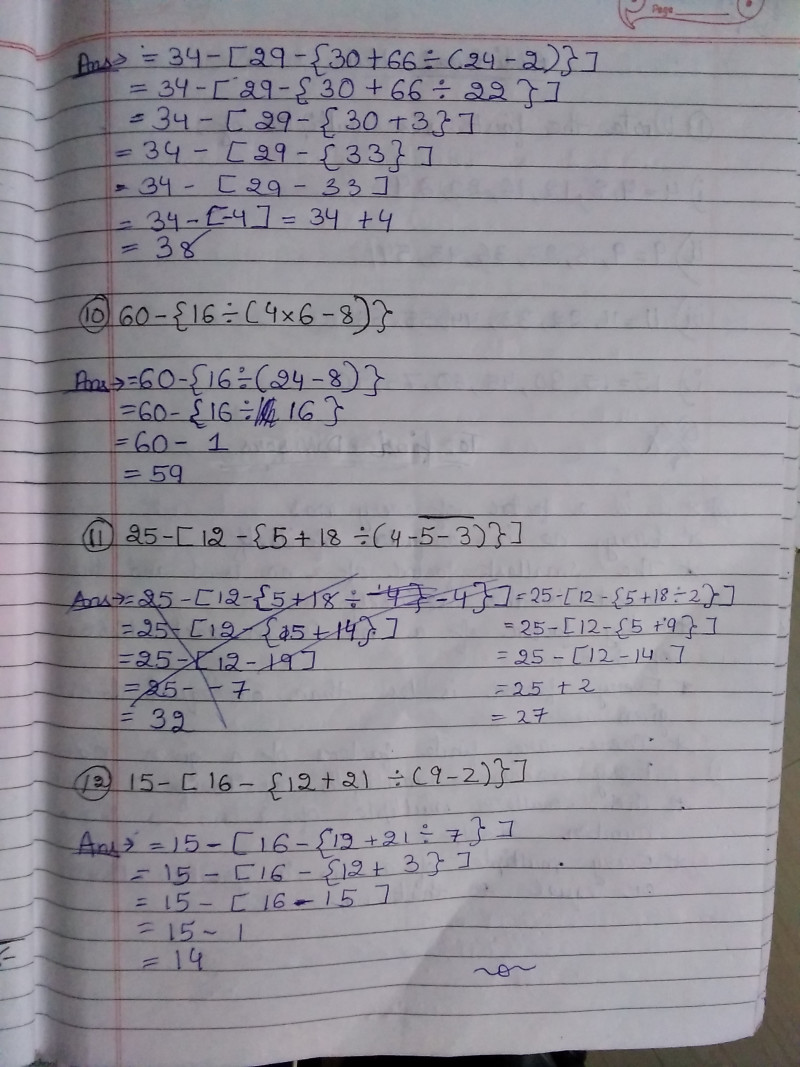 Page
Ans→ = 34-[29-{30+66÷(24-2)}]
= 34-[29-{30+66÷22}]
= 34-[29-{30+3}]
= 34-[29-{33}]
= 34-[29-33]
= 34-[-4] = 34+4
= 38
⑩ 60-{16÷(4×6-8)}
Ans→ =60-{16÷(24-8)}
=60-{16÷16}
=60-1
=59
⑪ 25-[12-{5+18÷(4-5̅-̅3̅)}]
Ans→ =25-[12-{5+18÷-4}]=25-[12-{5+18÷2}]
=25-[12-{15+14}] =25-[12-{5+9}]
=25-[12-19] =25-[12-14]
=25--7 =25+2
=32 =27
⑫ 15-[16-{12+21÷(9-2)}]
Ans→ =15-[16-{12+21÷7}]
=15-[16-{12+3}]
=15-[16-15]
=15-1
=14